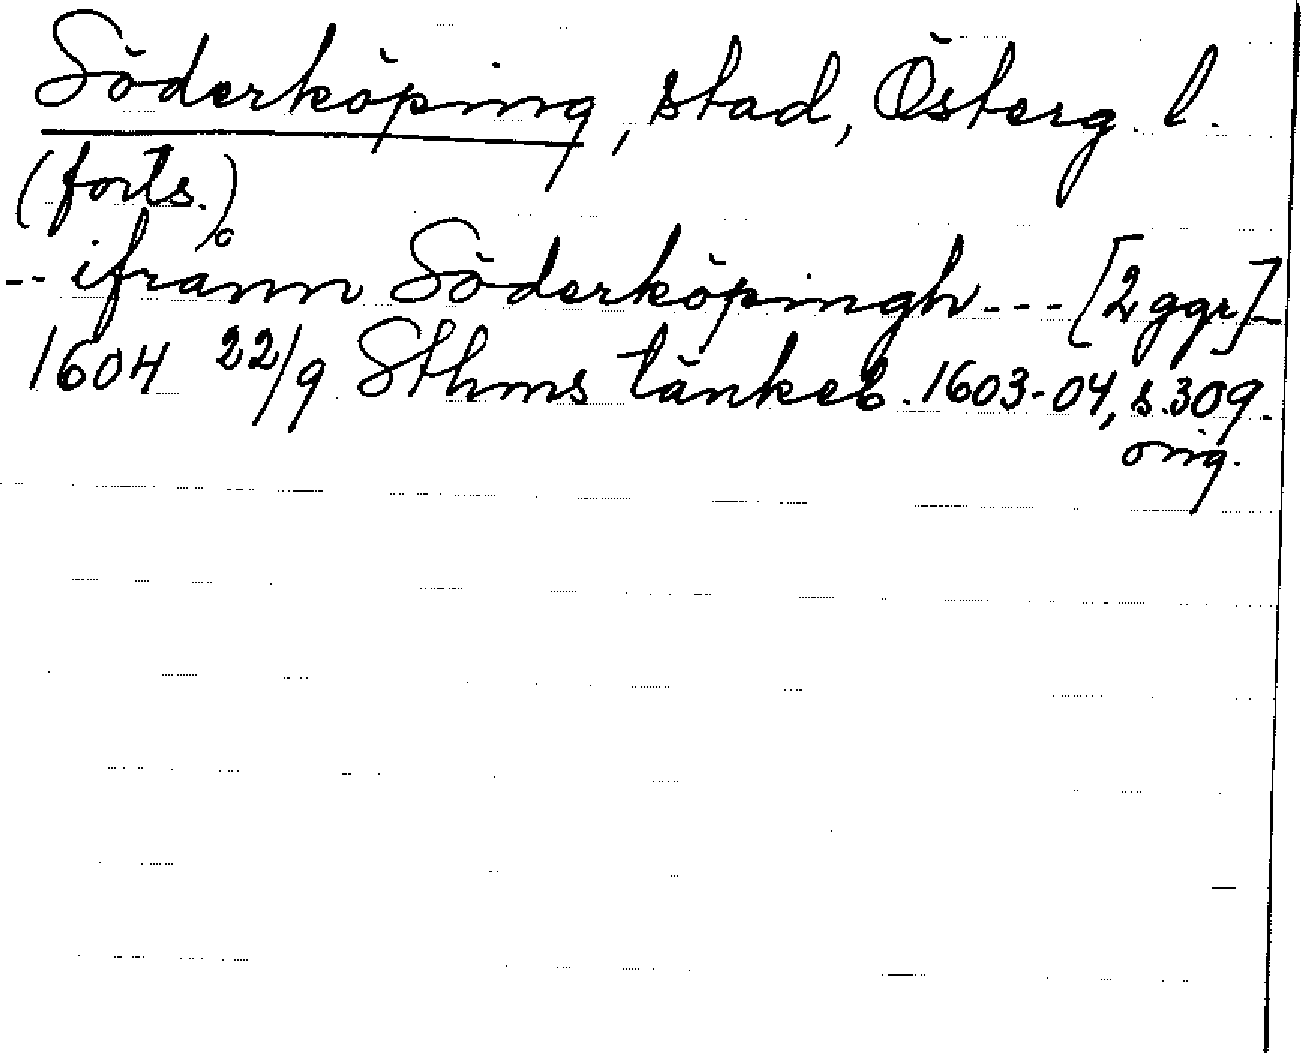 Söderköping, stad, Österg. l.
(forts.)
-- ifrånn Söderköpingh --- [2 ggr] -
1604 22/9 Sthms tänkeb. 1603-04, s. 309.
orig.